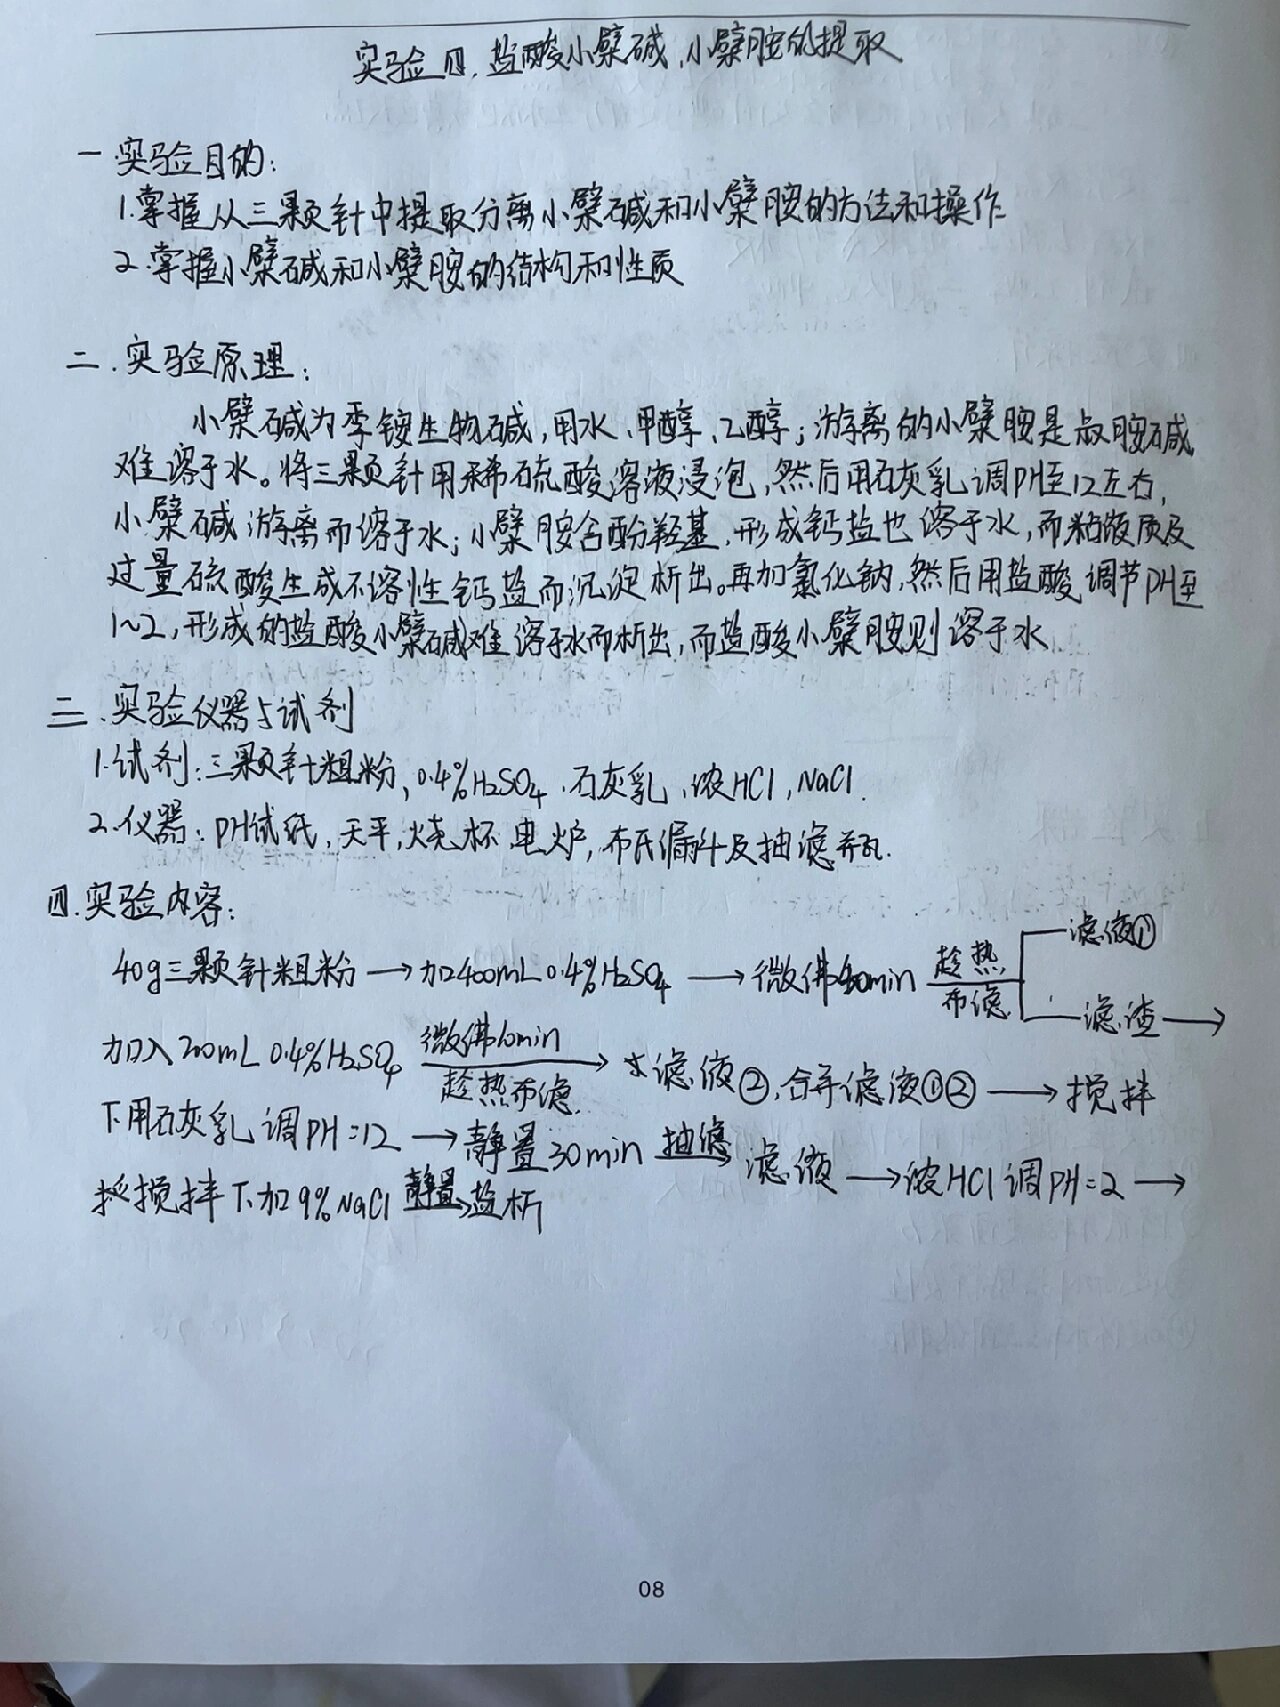 实验四、盐酸小檗碱、小檗胺的提取
一.实验目的:
1.掌握从三颗针中提取分离小檗碱和小檗胺的方法和操作
2.掌握小檗碱和小檗胺的结构和性质
二.实验原理:
小檗碱为季铵生物碱,用水、甲醇、乙醇;游离的小檗胺是叔胺碱,
难溶于水。将三颗针用稀硫酸溶液浸泡,然后用石灰乳调PH至12左右,
小檗碱游离而溶于水;小檗胺含酚羟基,形成钙盐也溶于水,而粘液质及
过量硫酸生成不溶性钙盐而沉淀析出。再加氯化钠,然后用盐酸调节PH至
1~2,形成的盐酸小檗碱难溶于水而析出,而盐酸小檗胺则溶于水
三.实验仪器与试剂
1.试剂:三颗针粗粉、0.4%H₂SO₄、石灰乳、浓HCl、NaCl.
2.仪器:PH试纸,天平,烧杯,电炉,布氏漏斗及抽滤瓶.
四.实验内容:
40g三颗针粗粉→加400mL0.4%H₂SO₄→微沸min 趁热 布滤 滤液① 滤渣→
加入200mL 0.4%H₂SO₄ 微沸10min 趁热布滤→滤液②,合并滤液①②→搅拌
下用石灰乳调PH=12→静置30min 抽滤→滤液→浓HCl调PH=2→
搅拌下加9%NaCl 静置→盐析
08